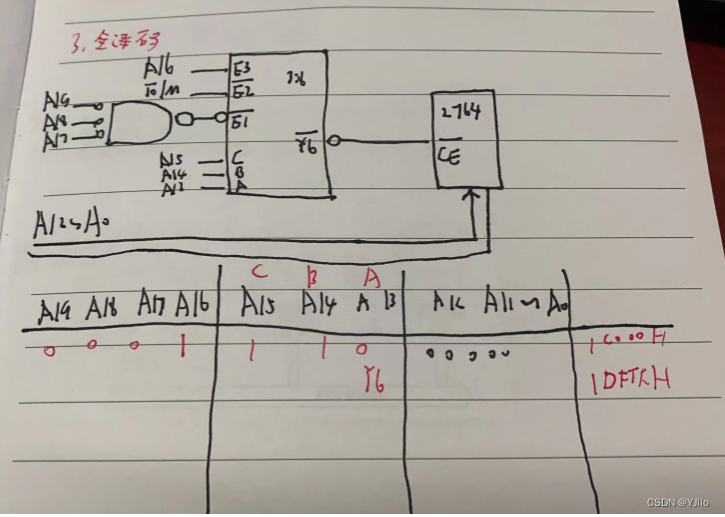 3、全译码
A16 E3 138
IO/M E2
A19
A18 E1
A17
Y6
2764
CE
A15 C
A14 B
A13 A
A12~A0
C B A
A19 A18 A17 A16 A15 A14 A13 A12 A11~A0
0 0 0 1 1 1 0 0 0 0 0 0 1C000H
Y6 1DFFFH
CSDN @YJlio